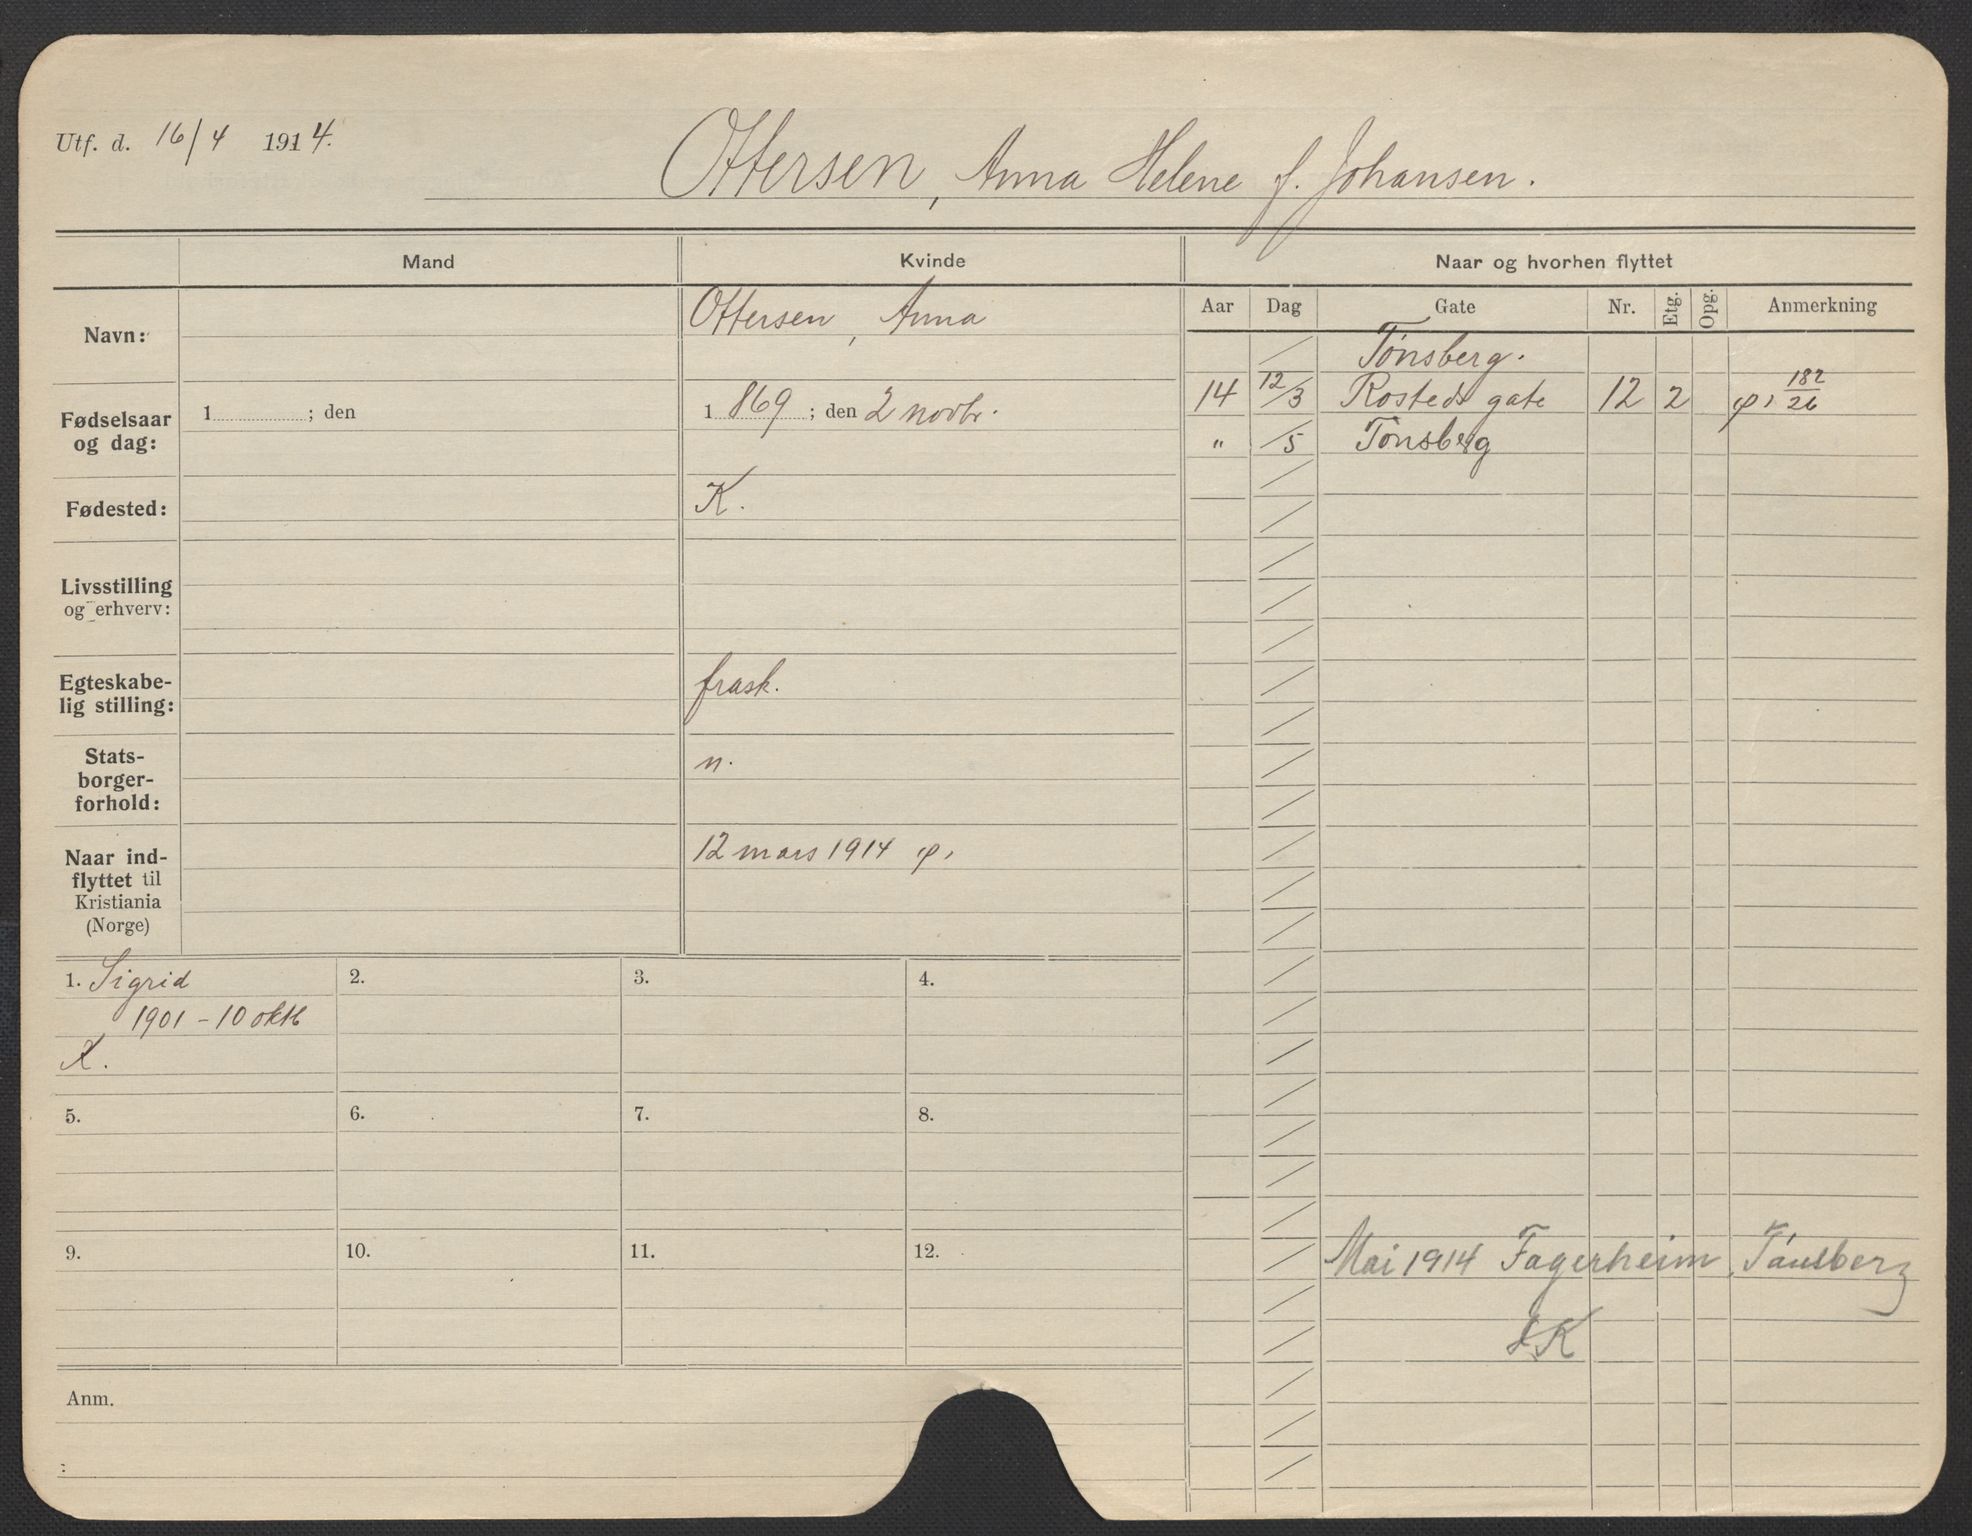 Utf. d. 16/4 1914.
Ottersen, Anna Helene f. Johansen.
Mand
Kvinde
Naar og hvorhen flyttet
Aar Dag Gate Nr. Etg. Opg. Anmerkning
Navn:
Ottersen, Anna
Fødselsaar
og dag:
1 ; den
1 869 ; den 2 novbr.
Fødested:
K.
Livsstilling
og erhverv:
Egteskabe-
lig stilling:
frask.
Stats-
borger-
forhold:
n.
Naar ind-
flyttet til
Kristiania
(Norge)
12 mars 1914
Tønsberg.
14 12/3 Rosteds gate 12 2 182/26
" /5 Tønsberg
Mai 1914 Fagerheim, Tønsberg
1. Sigrid
1901 - 10 oktb
K.
2.
3.
4.
5.
6.
7.
8.
9.
10.
11.
12.
Anm.